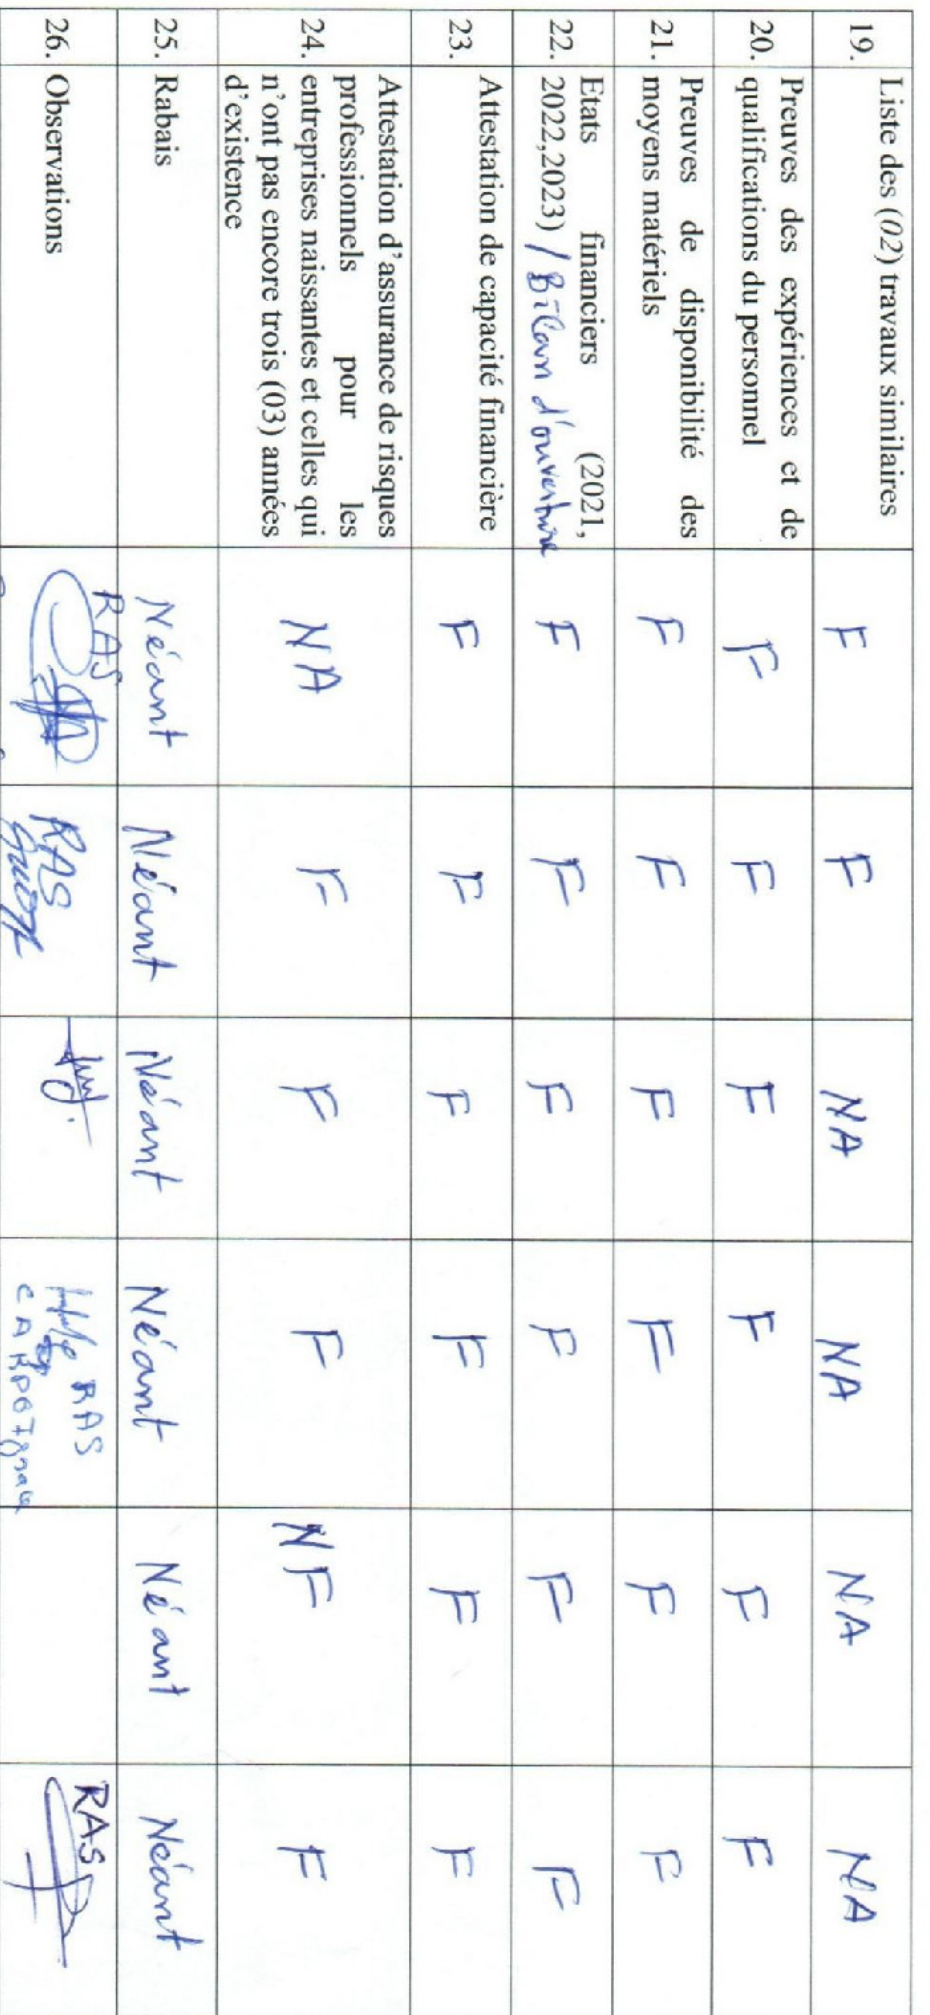 19. Liste des (02) travaux similaires F F NA NA NA NA
20. Preuves des expériences et de
qualifications du personnel F F F F F F
21. Preuves de disponibilité des
moyens matériels F F F F F F
22. Etats financiers (2021,
2022,2023) / Bilan d'ouverture F F F F F F
23. Attestation de capacité financière F F F F F F
24. Attestation d'assurance de risques
professionnels pour les
entreprises naissantes et celles qui
n'ont pas encore trois (03) années
d'existence NA F F F NF F
25. Rabais Néant Néant Néant Néant Néant Néant
26. Observations RAS RAS RAS RAS